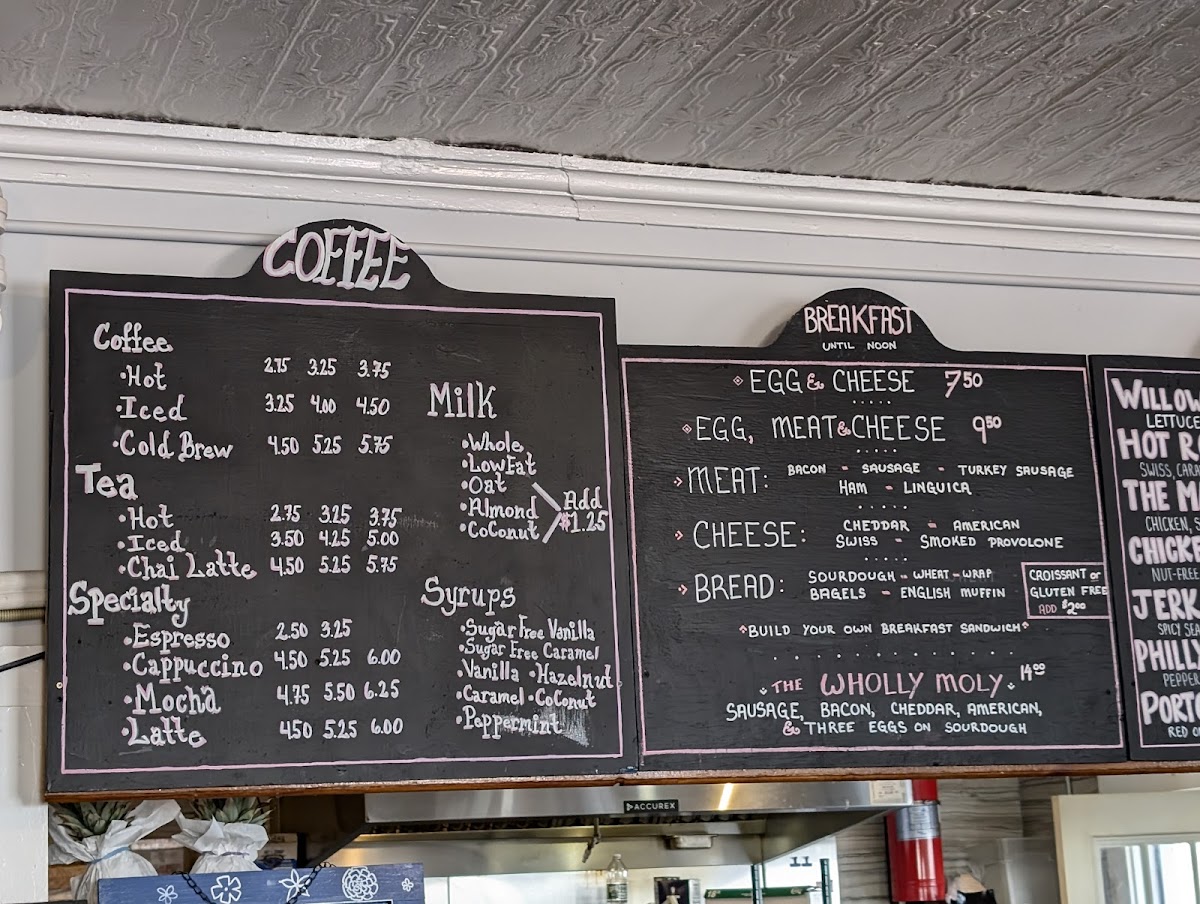 COFFEE
Coffee
•Hot 2.75 3.25 3.75
•Iced 3.25 4.00 4.50
•Cold Brew 4.50 5.25 5.75
Tea
•Hot 2.75 3.25 3.75
•Iced 3.50 4.25 5.00
•Chai Latte 4.50 5.25 5.75
Specialty
•Espresso 2.50 3.25
•Cappuccino 4.50 5.25 6.00
•Mocha 4.75 5.50 6.25
•Latte 4.50 5.25 6.00
Milk
•Whole
•LowFat
•Oat
•Almond
•CoConut
Add
$1.25
Syrups
•Sugar Free Vanilla
•Sugar Free Caramel
•Vanilla •Hazelnut
•Caramel •Coconut
•Peppermint
BREAKFAST
UNTIL NOON
EGG & CHEESE 7.50
EGG, MEAT & CHEESE 9.50
MEAT: BACON - SAUSAGE - TURKEY SAUSAGE
HAM - LINGUICA
CHEESE: CHEDDAR - AMERICAN
SWISS - SMOKED PROVOLONE
BREAD: SOURDOUGH - WHEAT - WRAP
BAGELS - ENGLISH MUFFIN
CROISSANT or
GLUTEN FREE
ADD $2.00
*BUILD YOUR OWN BREAKFAST SANDWICH*
THE WHOLLY MOLY 14.00
SAUSAGE, BACON, CHEDDAR, AMERICAN,
& THREE EGGS ON SOURDOUGH
WILLOW
LETTUCE
HOT
SWISS,
THE
CHICKEN,
NUT-FREE
JERK
SPICY
PHILLY
PEPPER
PORT
RED
ACCUREX
11